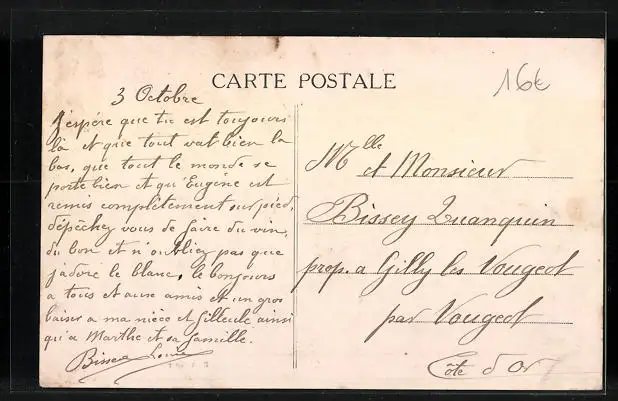 CARTE POSTALE
16€
3 Octobre
J'espère que tu est toujours
là et que tout vat bien la
bas, que tout le monde se
porte bien et qu'Eugène est
remis complètement sur pied,
dépêchez vous de faire du vin,
du bon et n'oubliez pas que
j'adore le blanc, le bonjours
a tous et aux amis et un gros
baiser a ma nièce et filleule ainsi
qu'a Marthe et sa famille.
Bissey
Mlle et Monsieur
Bissey Quanquin
prop. a Gilly les Vougeot
par Vougeot
Côte d'Or